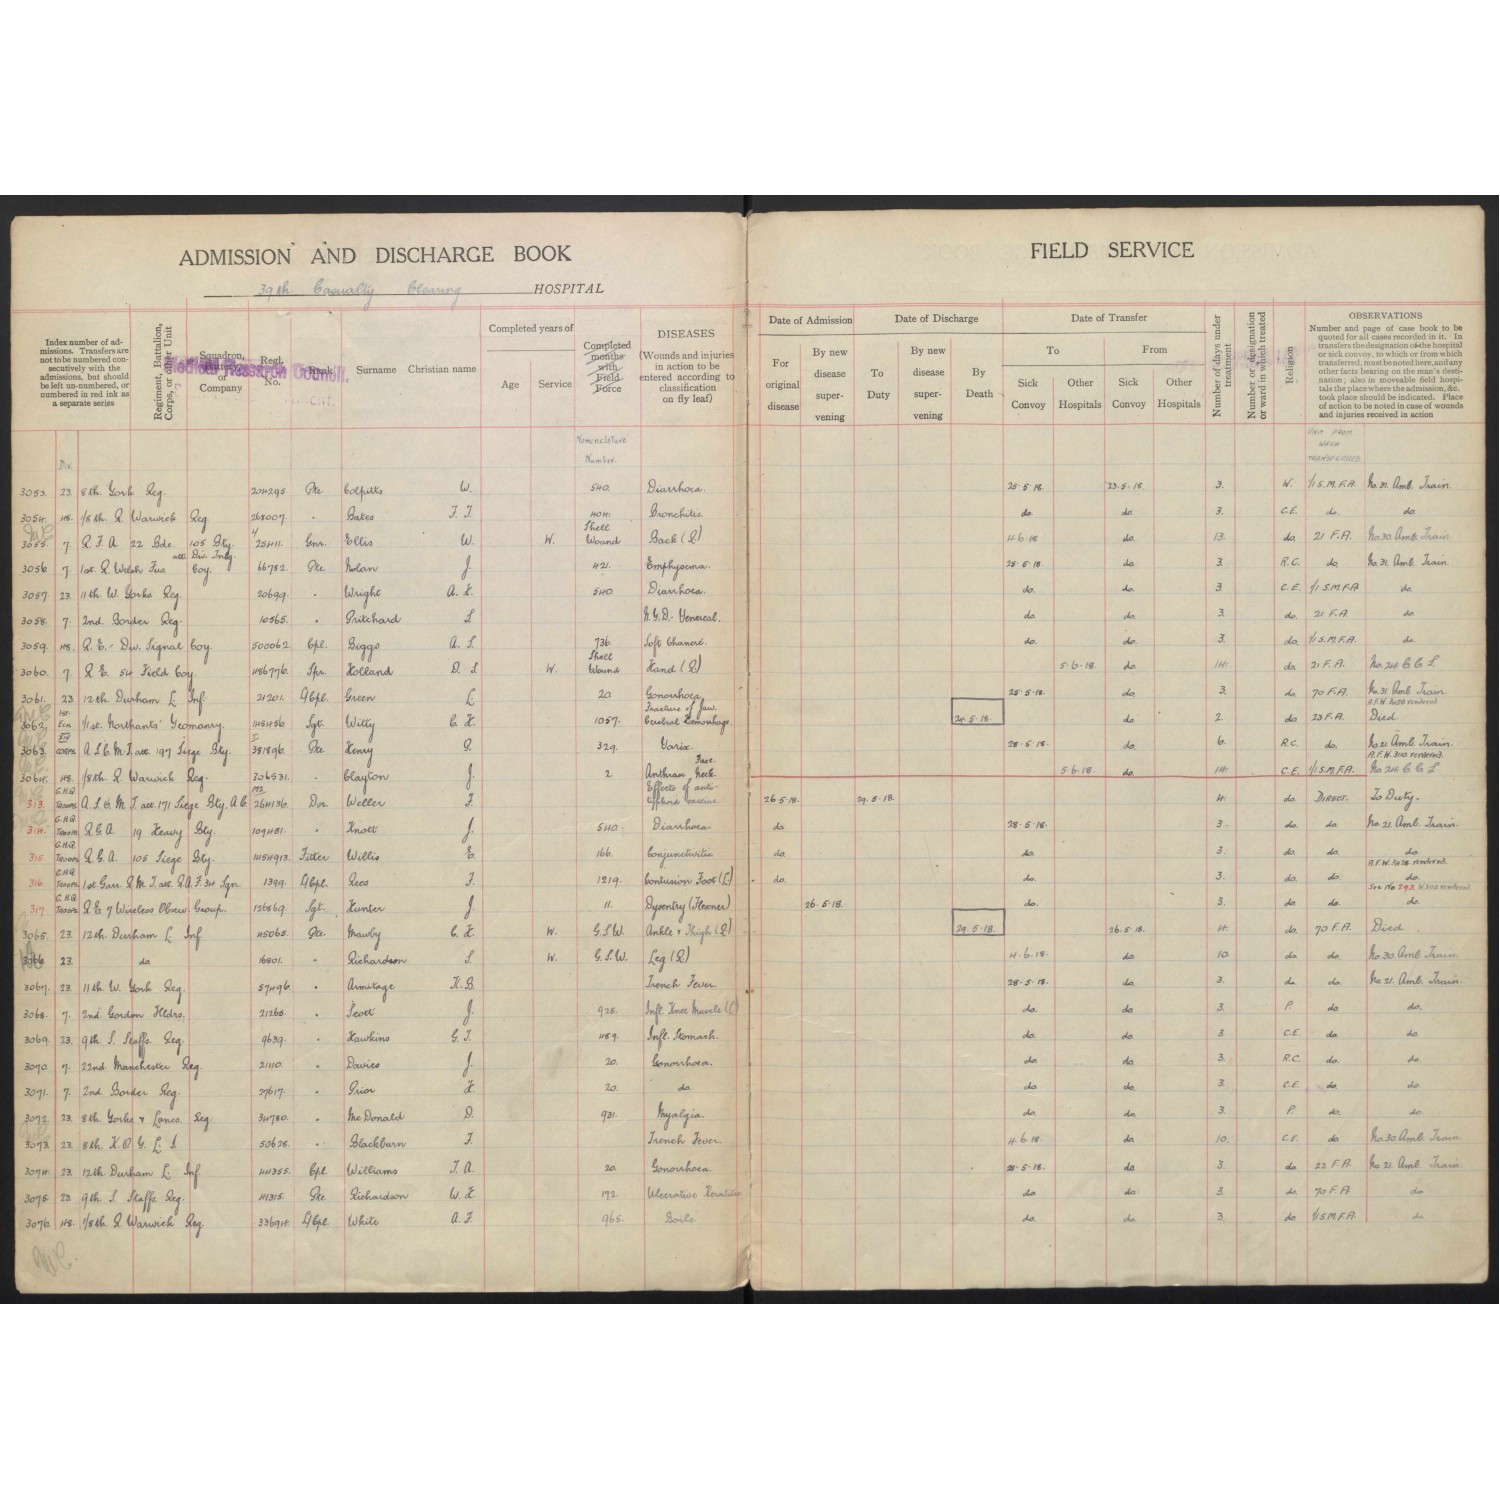 ADMISSION AND DISCHARGE BOOK
39th Casualty Clearing HOSPITAL
FIELD SERVICE
Index number of admissions. Transfers are not to be numbered consecutively with the admissions, but should be left un-numbered, or numbered in red ink as a separate series
Regiment, Battalion, Corps, or other Unit
Squadron, Battery or Company
Regl. No.
Rank
Surname Christian name
Completed years of
Age Service
Completed months with Field Force
DISEASES
(Wounds and injuries in action to be entered according to classification on fly leaf)
Medical Research Council.
Date of Admission
For original disease
By new disease supervening
Date of Discharge
To Duty
By new disease supervening
By Death
Date of Transfer
To From
Sick Convoy Other Hospitals Sick Convoy Other Hospitals
Number of days under treatment
Number or designation of ward in which treated
Religion
OBSERVATIONS
Number and page of case book to be quoted for all cases recorded in it. In transfers the designation of the hospital or sick convoy, to which or from which transferred, must be noted here, and any other facts bearing on the man's destination; also in moveable field hospitals the place where the admission, &c. took place should be indicated. Place of action to be noted in case of wounds and injuries received in action
Div. Nomenclature Number. UNIT FROM WHICH TRANSFERRED
3053. 23. 8th York Reg. 204295 Pte Colpitts W. 540. Diarrhoea. 25·5·18. 23·5·18. 3. W. 1/1 S.M.F.A. No. 31. Amb. Train.
3054. 48. 1/8th R. Warwick Reg 268007 " Bates F. J. 404. Bronchitis. do. do. 3. C.E. do. do.
3055. 7. R.F.A. 22 Bde. 105 Bty. Gnr. Ellis W. W. Shell Wound Back (R) 4·6·18 do. 13. do. 21 F.A. No. 30. Amb. Train
3056 7. 1st. R. Welsh Fus att. Div. Coy. 66782 Pte Nolan J. 421. Emphysema. 25·5·18. do 3. R.C. do. No. 31. Amb. Train.
3057. 23. 11th W. Yorks Reg. 20699. " Wright A. 540 Diarrhoea. do. do. 3 C.E. 1/1 S.M.F.A do.
3058. 7. 2nd. Border Reg. 10565. " Pritchard S N.Y.D. Venereal. do. do. 3. do. 21 F.A. do
3059. 48. R.E. Div. Signal Coy. 500062 Cpl. Biggs A. S. 736. Soft Chancre. do. do. 3. do. 1/1 S.M.F.A. do.
3060. 7. R.E. 54 Field Coy. 486776. Spr. Holland D. S W. Shell Wound Hand (R) 5·6·18. do. 14. do. 21 F.A. No. 24 C C S.
3061. 23 12th Durham L. Inf. 21201. A/Cpl. Green 20. Gonorrhoea. 25·5·18. do. 3. do. 70 F.A. No. 31 Amb Train.
3062. 1/1st. Northants' Yeomanry. 145456 Sgt. Witty C. H. 1057. Fracture of Jaw. Cerebral Hemorrhage. 24·5·18. do 2. do. 23 F.A. A.F.W. 3428 rendered Died.
3063. CORPS. A.S.C. M.T. att. 197 Siege Bty. 381896. Pte Henry 329. Varix. 28·5·18. do. 6. R.C. do. No. 21. Amb. Train.
3064. 48. 1/8th. R. Warwick Reg. 306531. " Clayton J. 2 Anthrax Face Neck. 5·6·18 do. 14. C.E. 1/1 S.M.F.A. A.F.W. 3110 rendered. No. 24 C C S
313. G.H.Q. TROOPS. A.S.C. M.T. att. 171 Siege Bty. A.C 264136. Dvr. Weller F. Effects of anti-typhoid vaccine. 26·5·18. 29·5·18. 4. do. DIRECT. To Duty.
314. G.H.Q. TROOPS. R.G.A. 19 Heavy Bty. 109481. " Knott J. 540 Diarrhoea. do. 28·5·18. 3. do. do. No. 21. Amb. Train.
315 G.H.Q. TROOPS R.G.A. 105 Siege Bty. 1454913. Fitter Willis E. 166. Conjunctivitis do. do. 3. do. do. do.
316. G.H.Q. TROOPS. 1st Garr. R.M.F. att. R.A.F. 34 Sqn. 1399. A/Cpl. Rees F. 1219. Contusion Foot (L) do. do. 3. do. do. A.F.W. 3428 rendered. do.
317. G.H.Q. TROOPS R.E. 7 Wireless Obser. Group. 126869. Sgt. Hunter J. 11. Dysentry (Flexner) 26·5·18. do. 3. do. do. See No 293. W3110 rendered do.
3065. 23. 12th. Durham L. Inf 45065. Pte. Mawby C. H. W. G.S.W. Ankle & Thigh (R) 29·5·18. 26·5·18. 4. do. 70 F.A. Died
3066. 23. do 16801. " Richardson S. W. G.S.W. Leg (R) 4·6·18. do. 10. do. do. No. 30. Amb. Train.
3067. 23. 11th W. York Reg. 57496. " Armitage H.B. Trench Fever. 28·5·18. do. 3. do. do. No. 21. Amb. Train.
3068. 7. 2nd. Gordon Hldrs. 21265. " Scott J. 925. Infl. Knee Muscle do. do. 3. P. do. do.
3069. 23. 9th. S. Staffs. Reg. 9639. " Hawkins G. T. 459. Infl. Stomach. do. do. 3. C.E. do. do.
3070. 7. 22nd. Manchester Reg. 21110. " Davies J. 20. Gonorrhoea. do do. 3. R.C. do. do.
3071. 7. 2nd. Border Reg. 27617. " Prior H 20. do. do do. 3. C.E. do. do.
3072. 23. 8th. Yorks & Lancs. Reg. 34780. " McDonald D. 931. Myalgia. do. do. 3. P. do. do.
3073. 23. 8th. K.O.Y.L.I. 50628. " Blackburn F. Trench Fever. 4·6·18. do. 10. C.E. do No. 30. Amb. Train
3074. 23. 12th. Durham L. Inf. 44355. Cpl. Williams T. A. 20. Gonorrhoea. 28·5·18. do. 3. do. 22 F.A. No. 21. Amb. Train.
3075. 23. 9th. S. Staffs. Reg. 41315. Pte Richardson W. H. 172. Ulcerative Keratitis do. do. 3. do. 70 F.A. do
3076. 48. 1/8th. R. Warwick Reg. 33694. A/Cpl. White A. F. 965. Boils. do. do. 3. do. 1/1 S.M.F.A. do